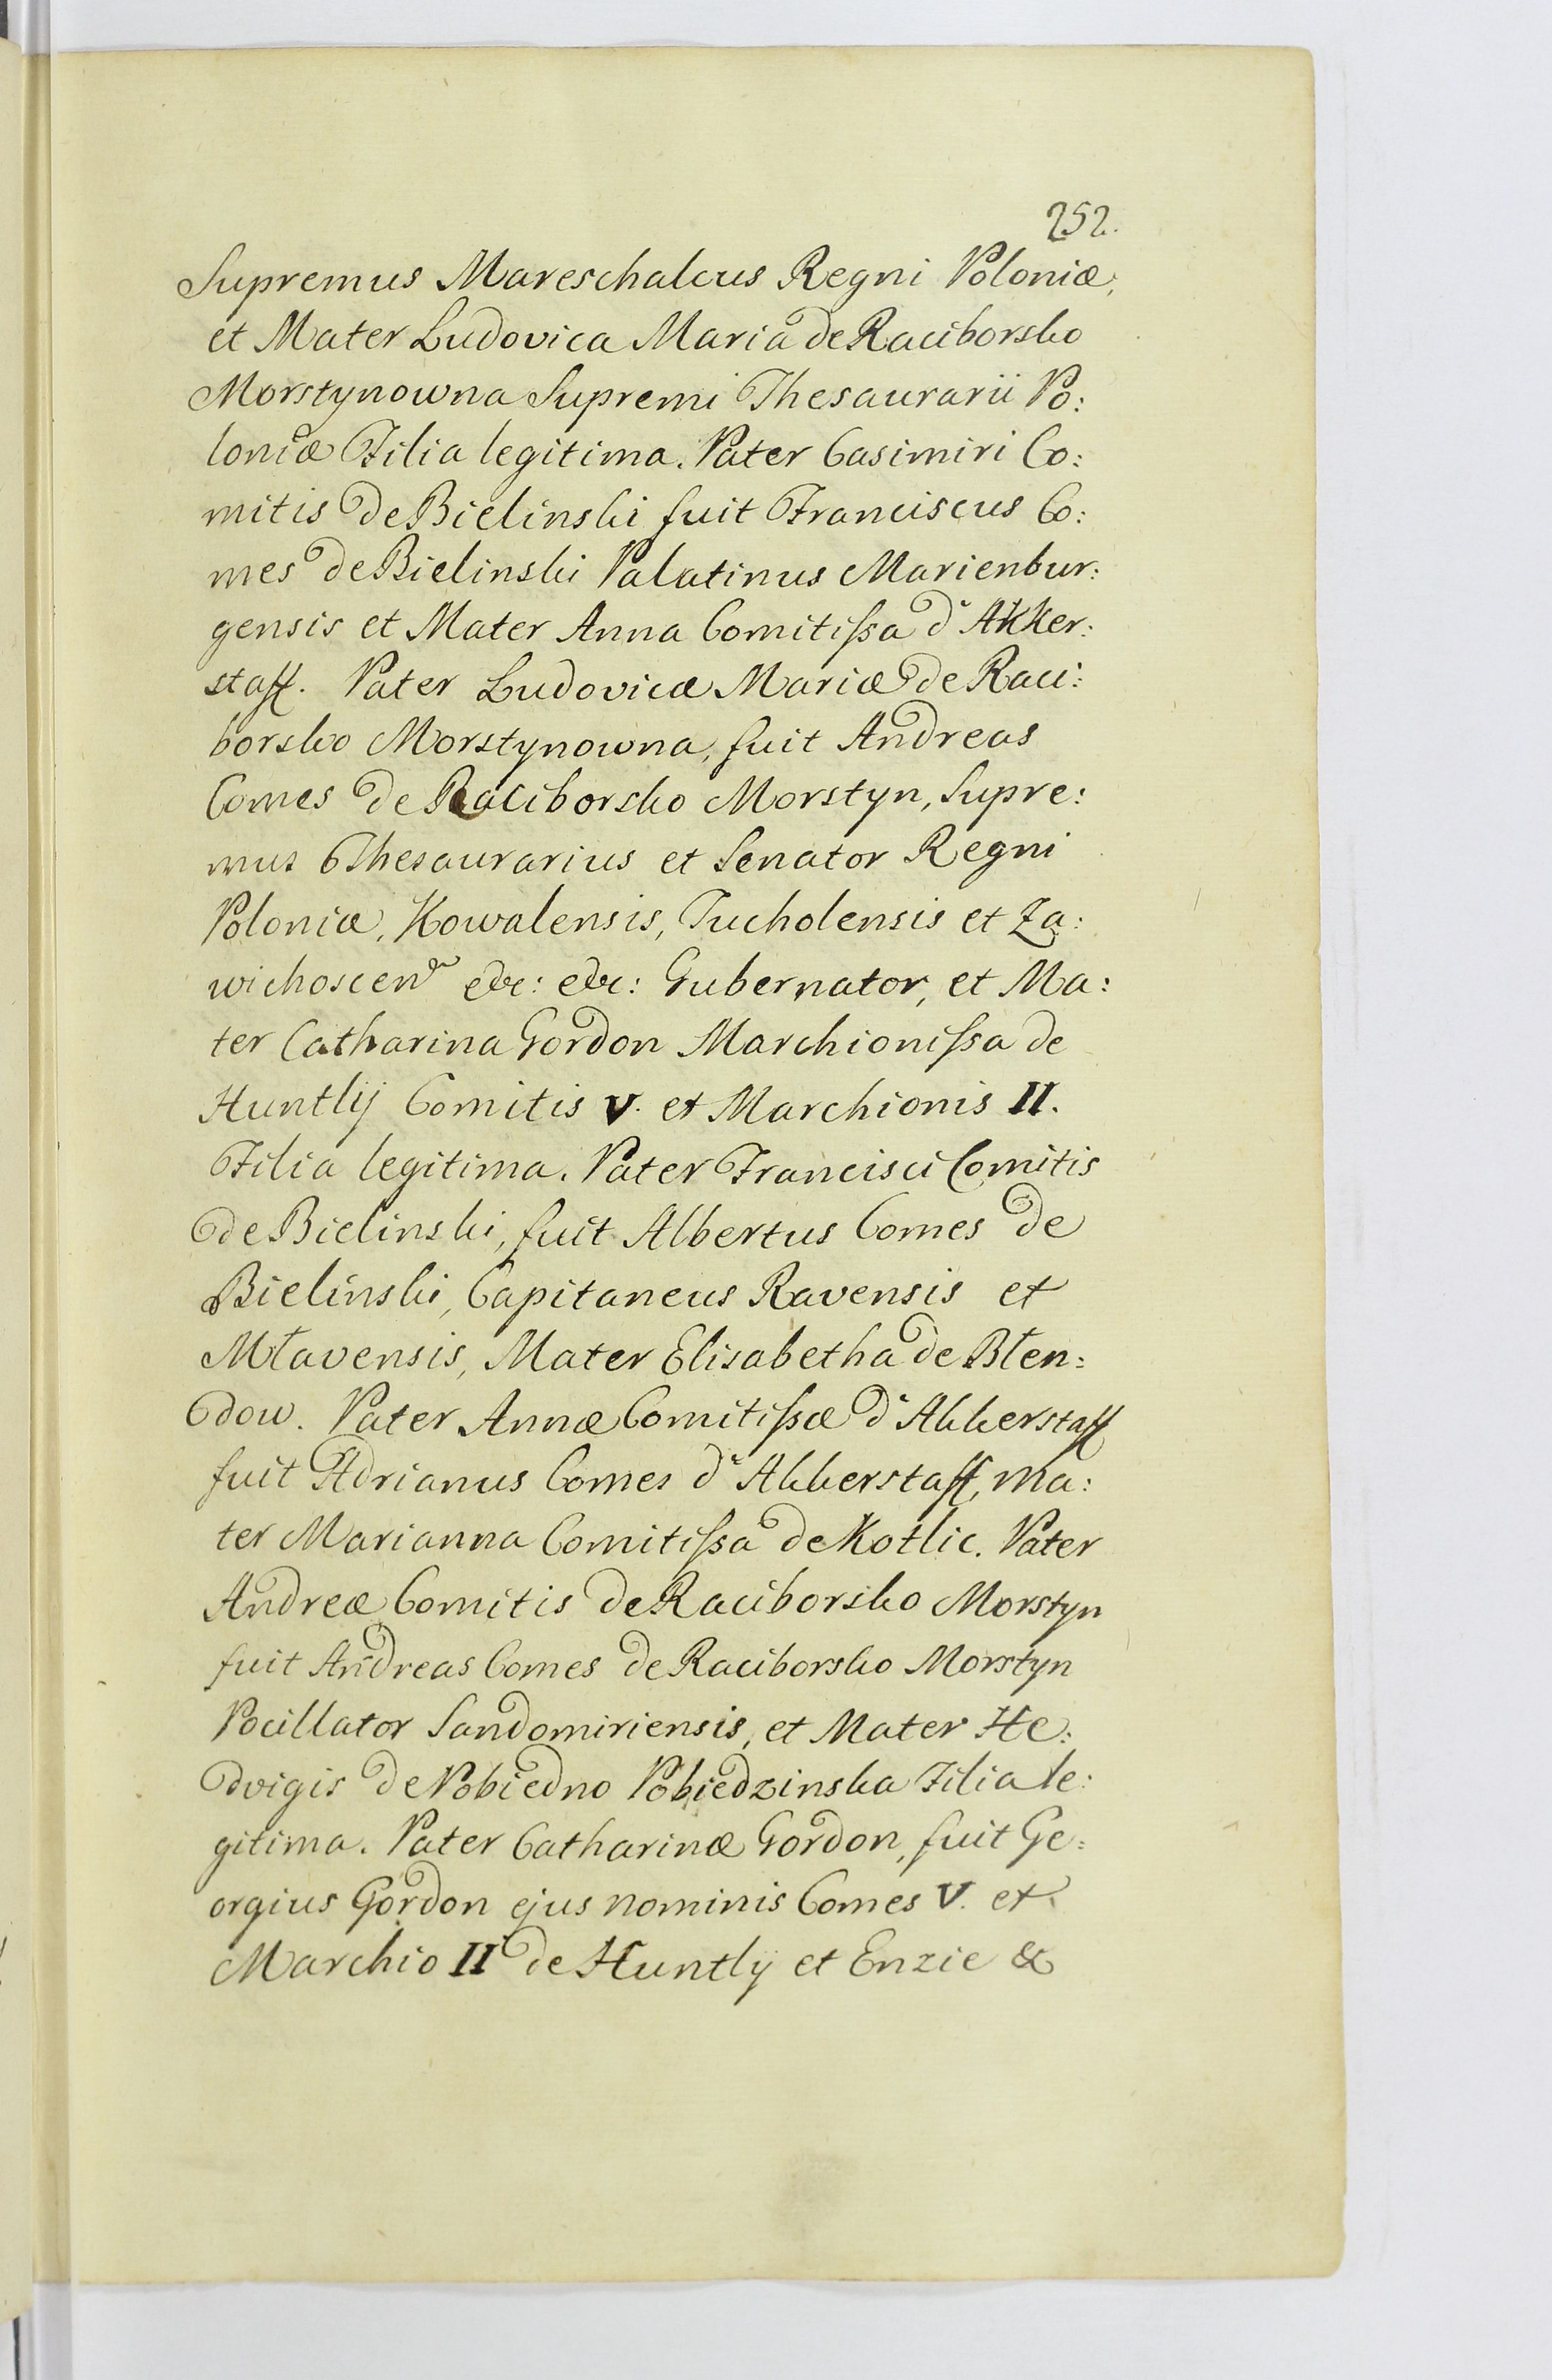 252.
Supremus Mareschalcus Regni Poloniæ,
et Mater Ludovica Maria de Raciborsko
Morstynowna Supremi Thesaurarii Po:
loniæ Filia legitima. Pater Casimiri Co:
mitis de Bielinski fuit Franciscus Co:
mes de Bielinski Palatinus Marienbur:
gensis et Mater Anna Comitißa d'Akker:
staff. Pater Ludovicæ Mariæ de Raci:
borsko Morstynowna, fuit Andreas
Comes de Raciborsko Morstyn, Supre:
mus Thesaurarius et Senator Regni
Poloniæ, Kowalensis, Tucholensis et Za:
wichoscen &c: &c: Gubernator, et Ma:
ter Catharina Gordon Marchionißa de
Huntlÿ Comitis V. et Marchionis II.
Filia legitima. Pater Francisci Comitis
de Bielinski, fuit Albertus Comes de
Bielinski, Capitaneus Ravensis et
Mławensis, Mater Elisabetha de Błen:
dow. Pater Annæ Comitißæ d'Akkerstaff
fuit Adrianus Comes d'Akkerstaff, Ma:
ter Marianna Comitißa de Kotlic. Pater
Andreæ Comitis de Raciborsko Morstyn
fuit Andreas Comes de Raciborsko Morstyn
Pocillator Sandomiriensis, et Mater He:
dvigis de Pobiedno Pobiedzinska Filia le:
gitima. Pater Catharinæ Gordon, fuit Ge:
orgius Gordon ejus nominis Comes V. et
Marchio II de Huntlÿ et Enzie &